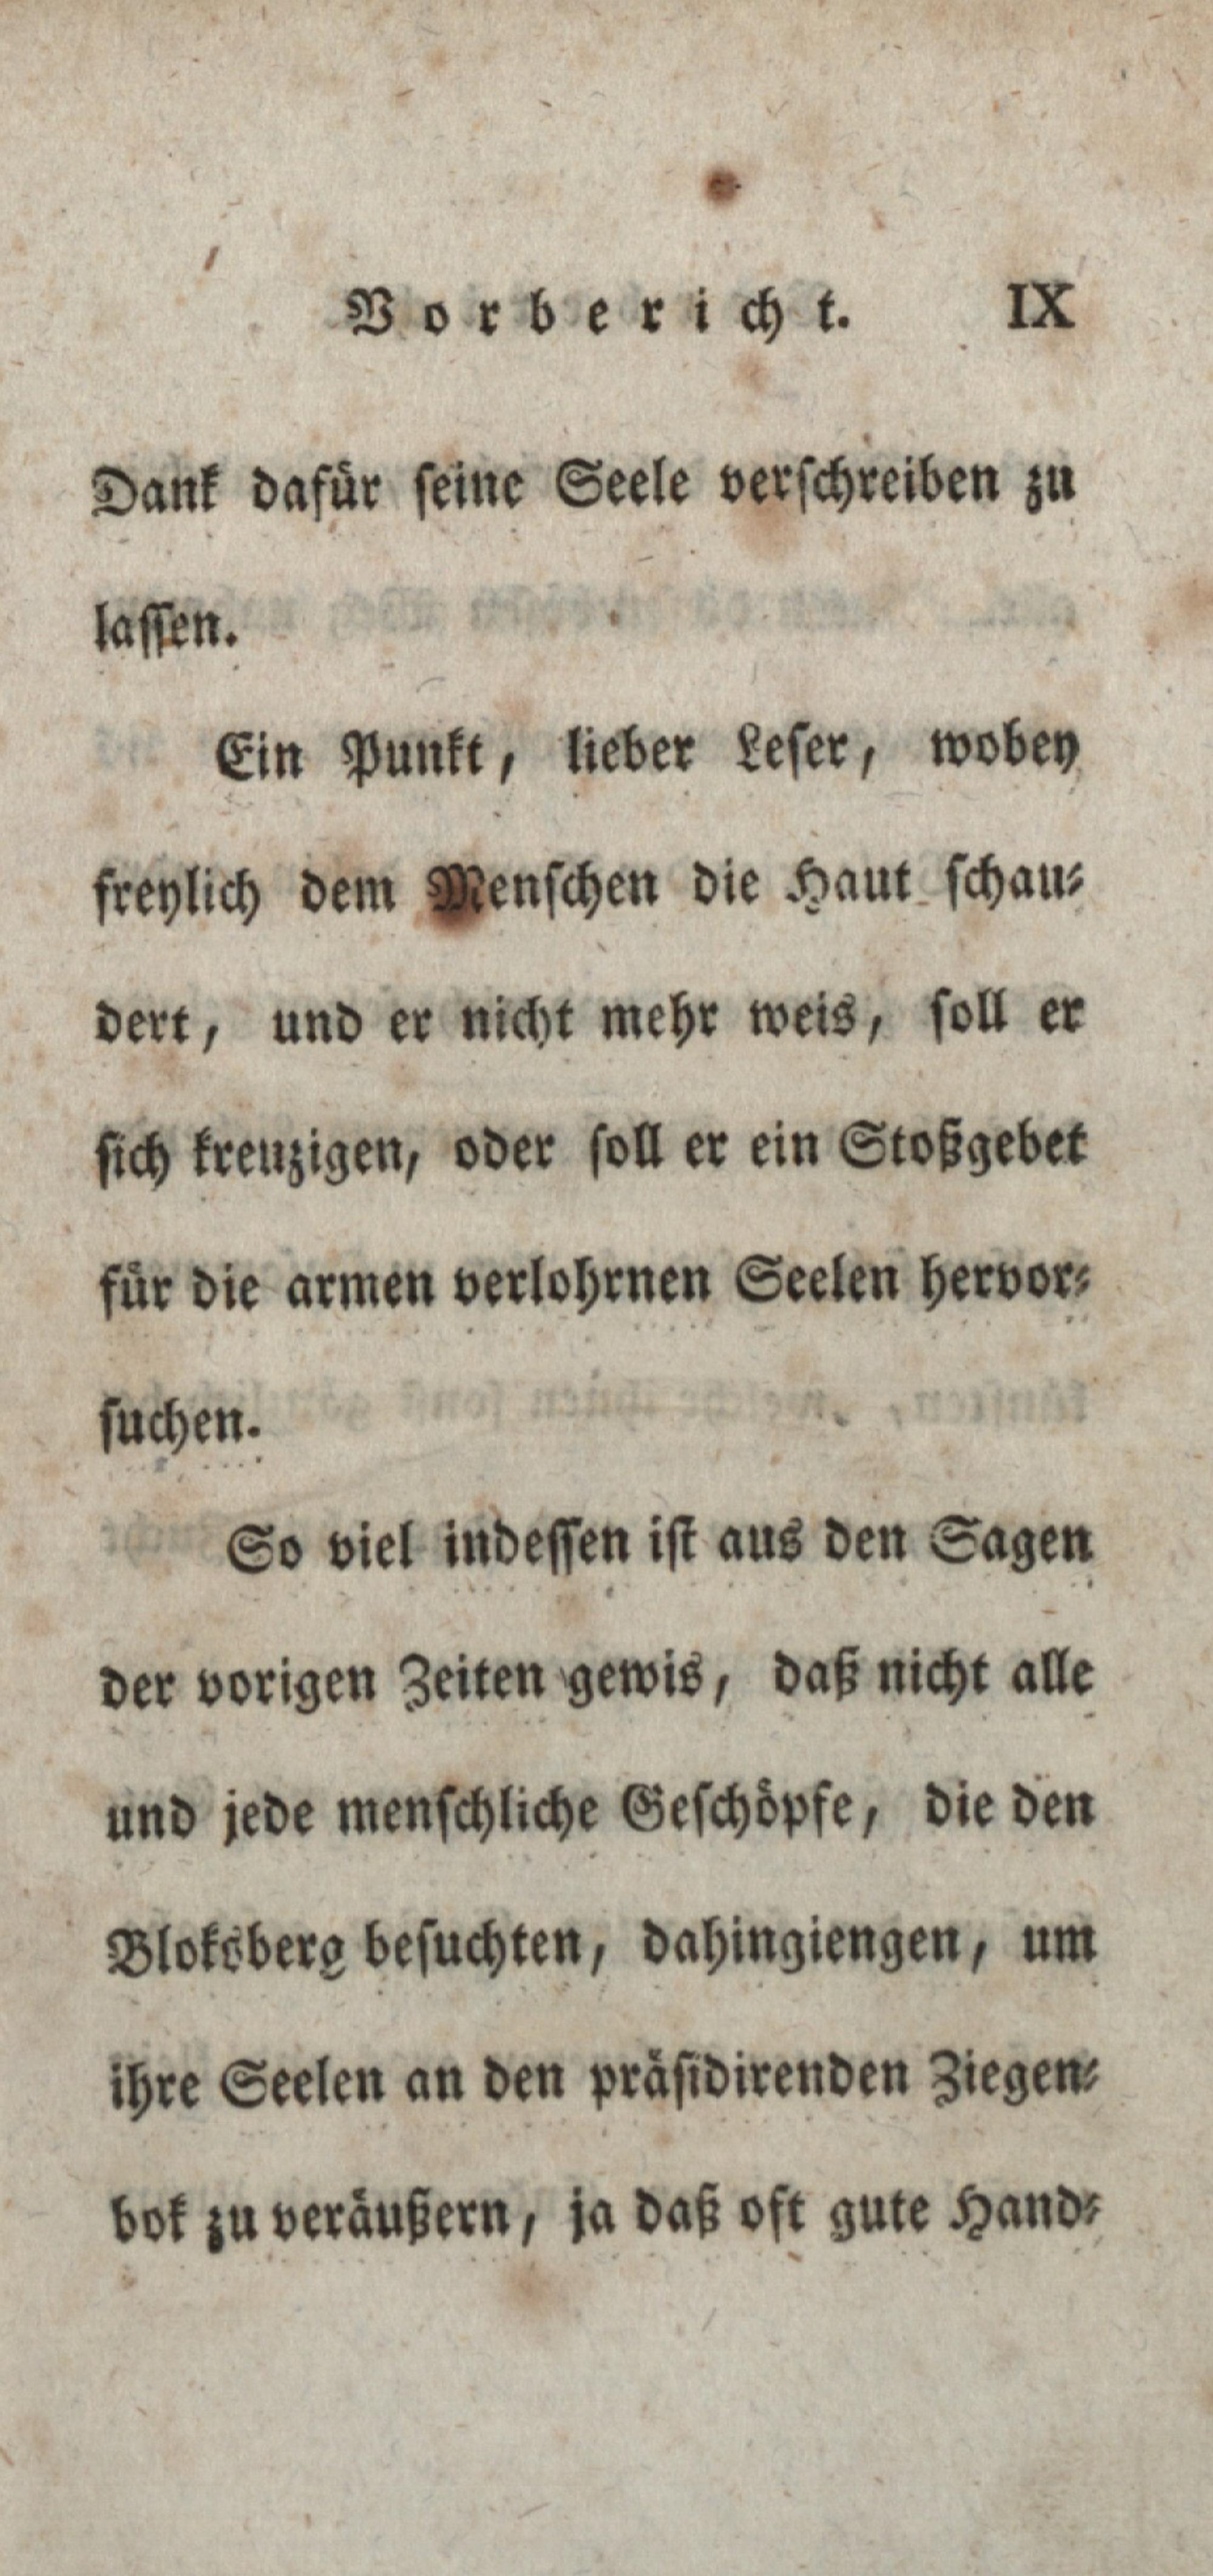 Vorbericht. IX
Dank dafür seine Seele verschreiben zu
lassen.
Ein Punkt, lieber Leser, wobey
freylich dem Menschen die Haut schau-
dert, und er nicht mehr weis, soll er
sich kreuzigen, oder soll er ein Stoßgebet
für die armen verlohrnen Seelen hervor-
suchen.
So viel indessen ist aus den Sagen
der vorigen Zeiten gewis, daß nicht alle
und jede menschliche Geschöpfe, die den
Bloksberg besuchten, dahingiengen, um
ihre Seelen an den präsidirenden Ziegen-
bok zu veräußern, ja daß oft gute Hand-